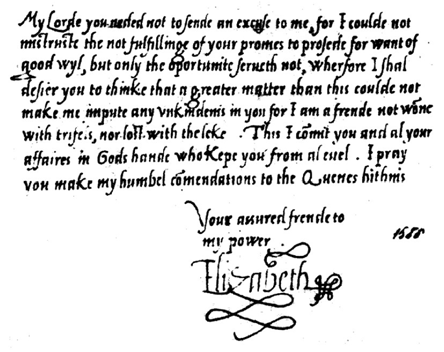 My Lorde you neded not to sende an excuse to me, for I coulde not
mistruste the not fulfillinge of your promes to prosede for want of
good wyl, but only the oportunite serueth not, Wherfore I shal
desier you to thinke that a greater matter than this coulde not
make me impute any vnkindenis in you for I am a frende not wone
with trifels, nor lost with the leke . This I comit you and al your
affaires in Gods hande who kepe you from al euel . I pray
you make my humbel comendations to the Quenes hithnis
Your assured frende to
my power
Elizabeth
1588